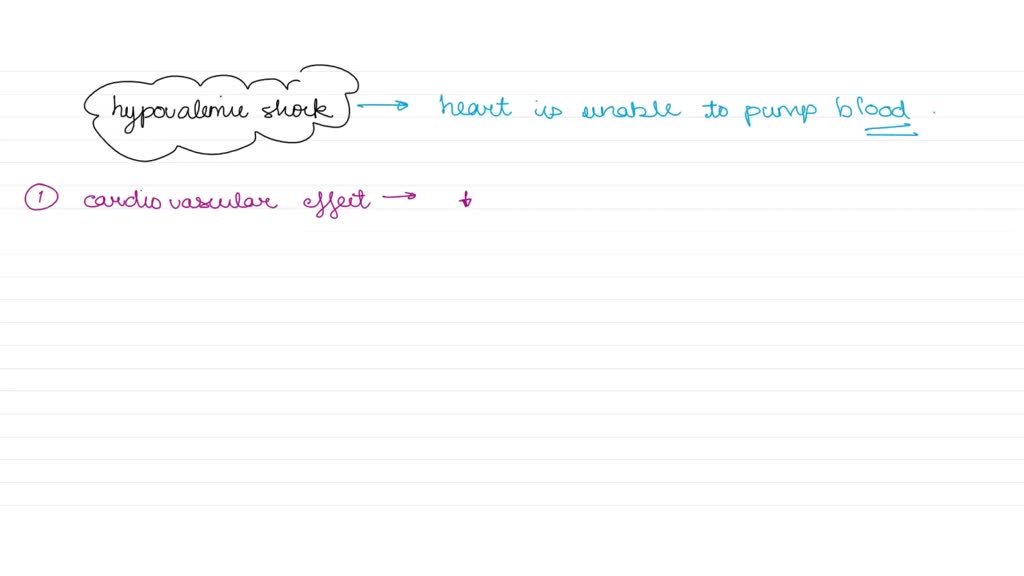 hypovalemic shock → heart is unable to pump blood.
① cardiovascular effect → ↓